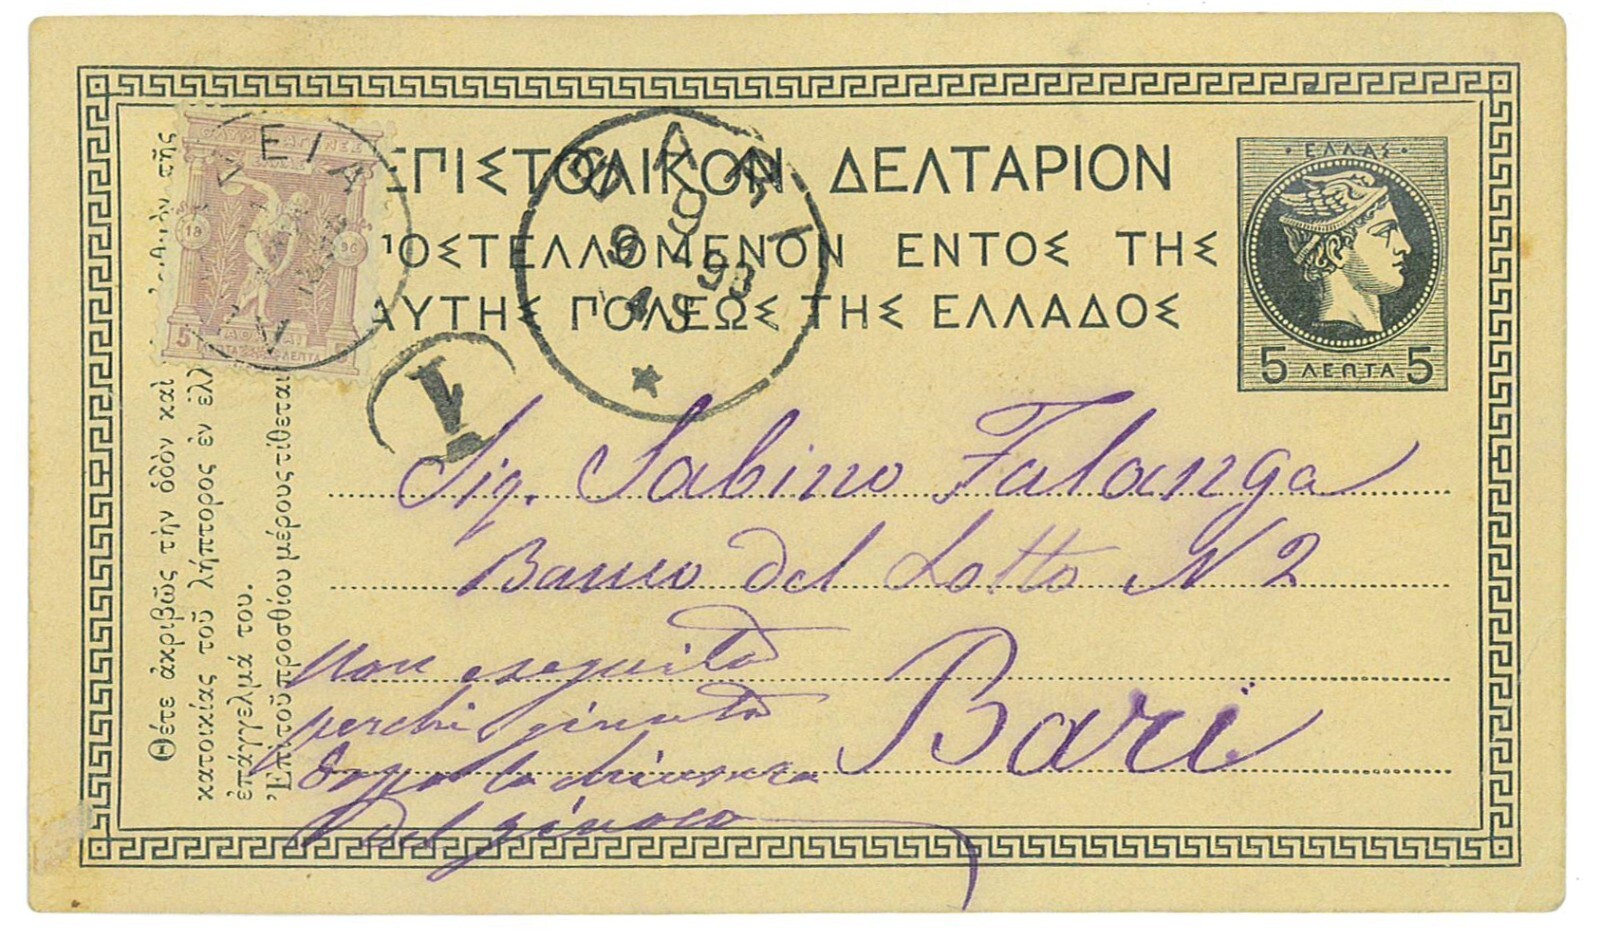 ΕΠΙΣΤΟΛΙΚΟΝ ΔΕΛΤΑΡΙΟΝ
ΟΣΤΕΛΛΟΜΕΝΟΝ ΕΝΤΟΣ ΤΗΣ
ΑΥΤΗΣ ΠΟΛΕΩΣ ΤΗΣ ΕΛΛΑΔΟΣ
· ΕΛΛΑΣ ·
5 ΛΕΠΤΑ 5
ΕΙΑ
18 96
5 ΛΕΠΤΑ
BARI
9
9 98
4 S
1
Sig. Sabino Falanga
Banco del Lotto N 2
Bari
non eseguita
perchè giunta
dopo la chiusura
del giuoco
Θέτε ἀκριβῶς τὴν ὁδὸν καὶ τῆς
κατοικίας τοῦ λήπτορος ἐν
ἐπάγγελμά του.
Ἐπὶ τοῦ προσθίου μέρους τίθεται